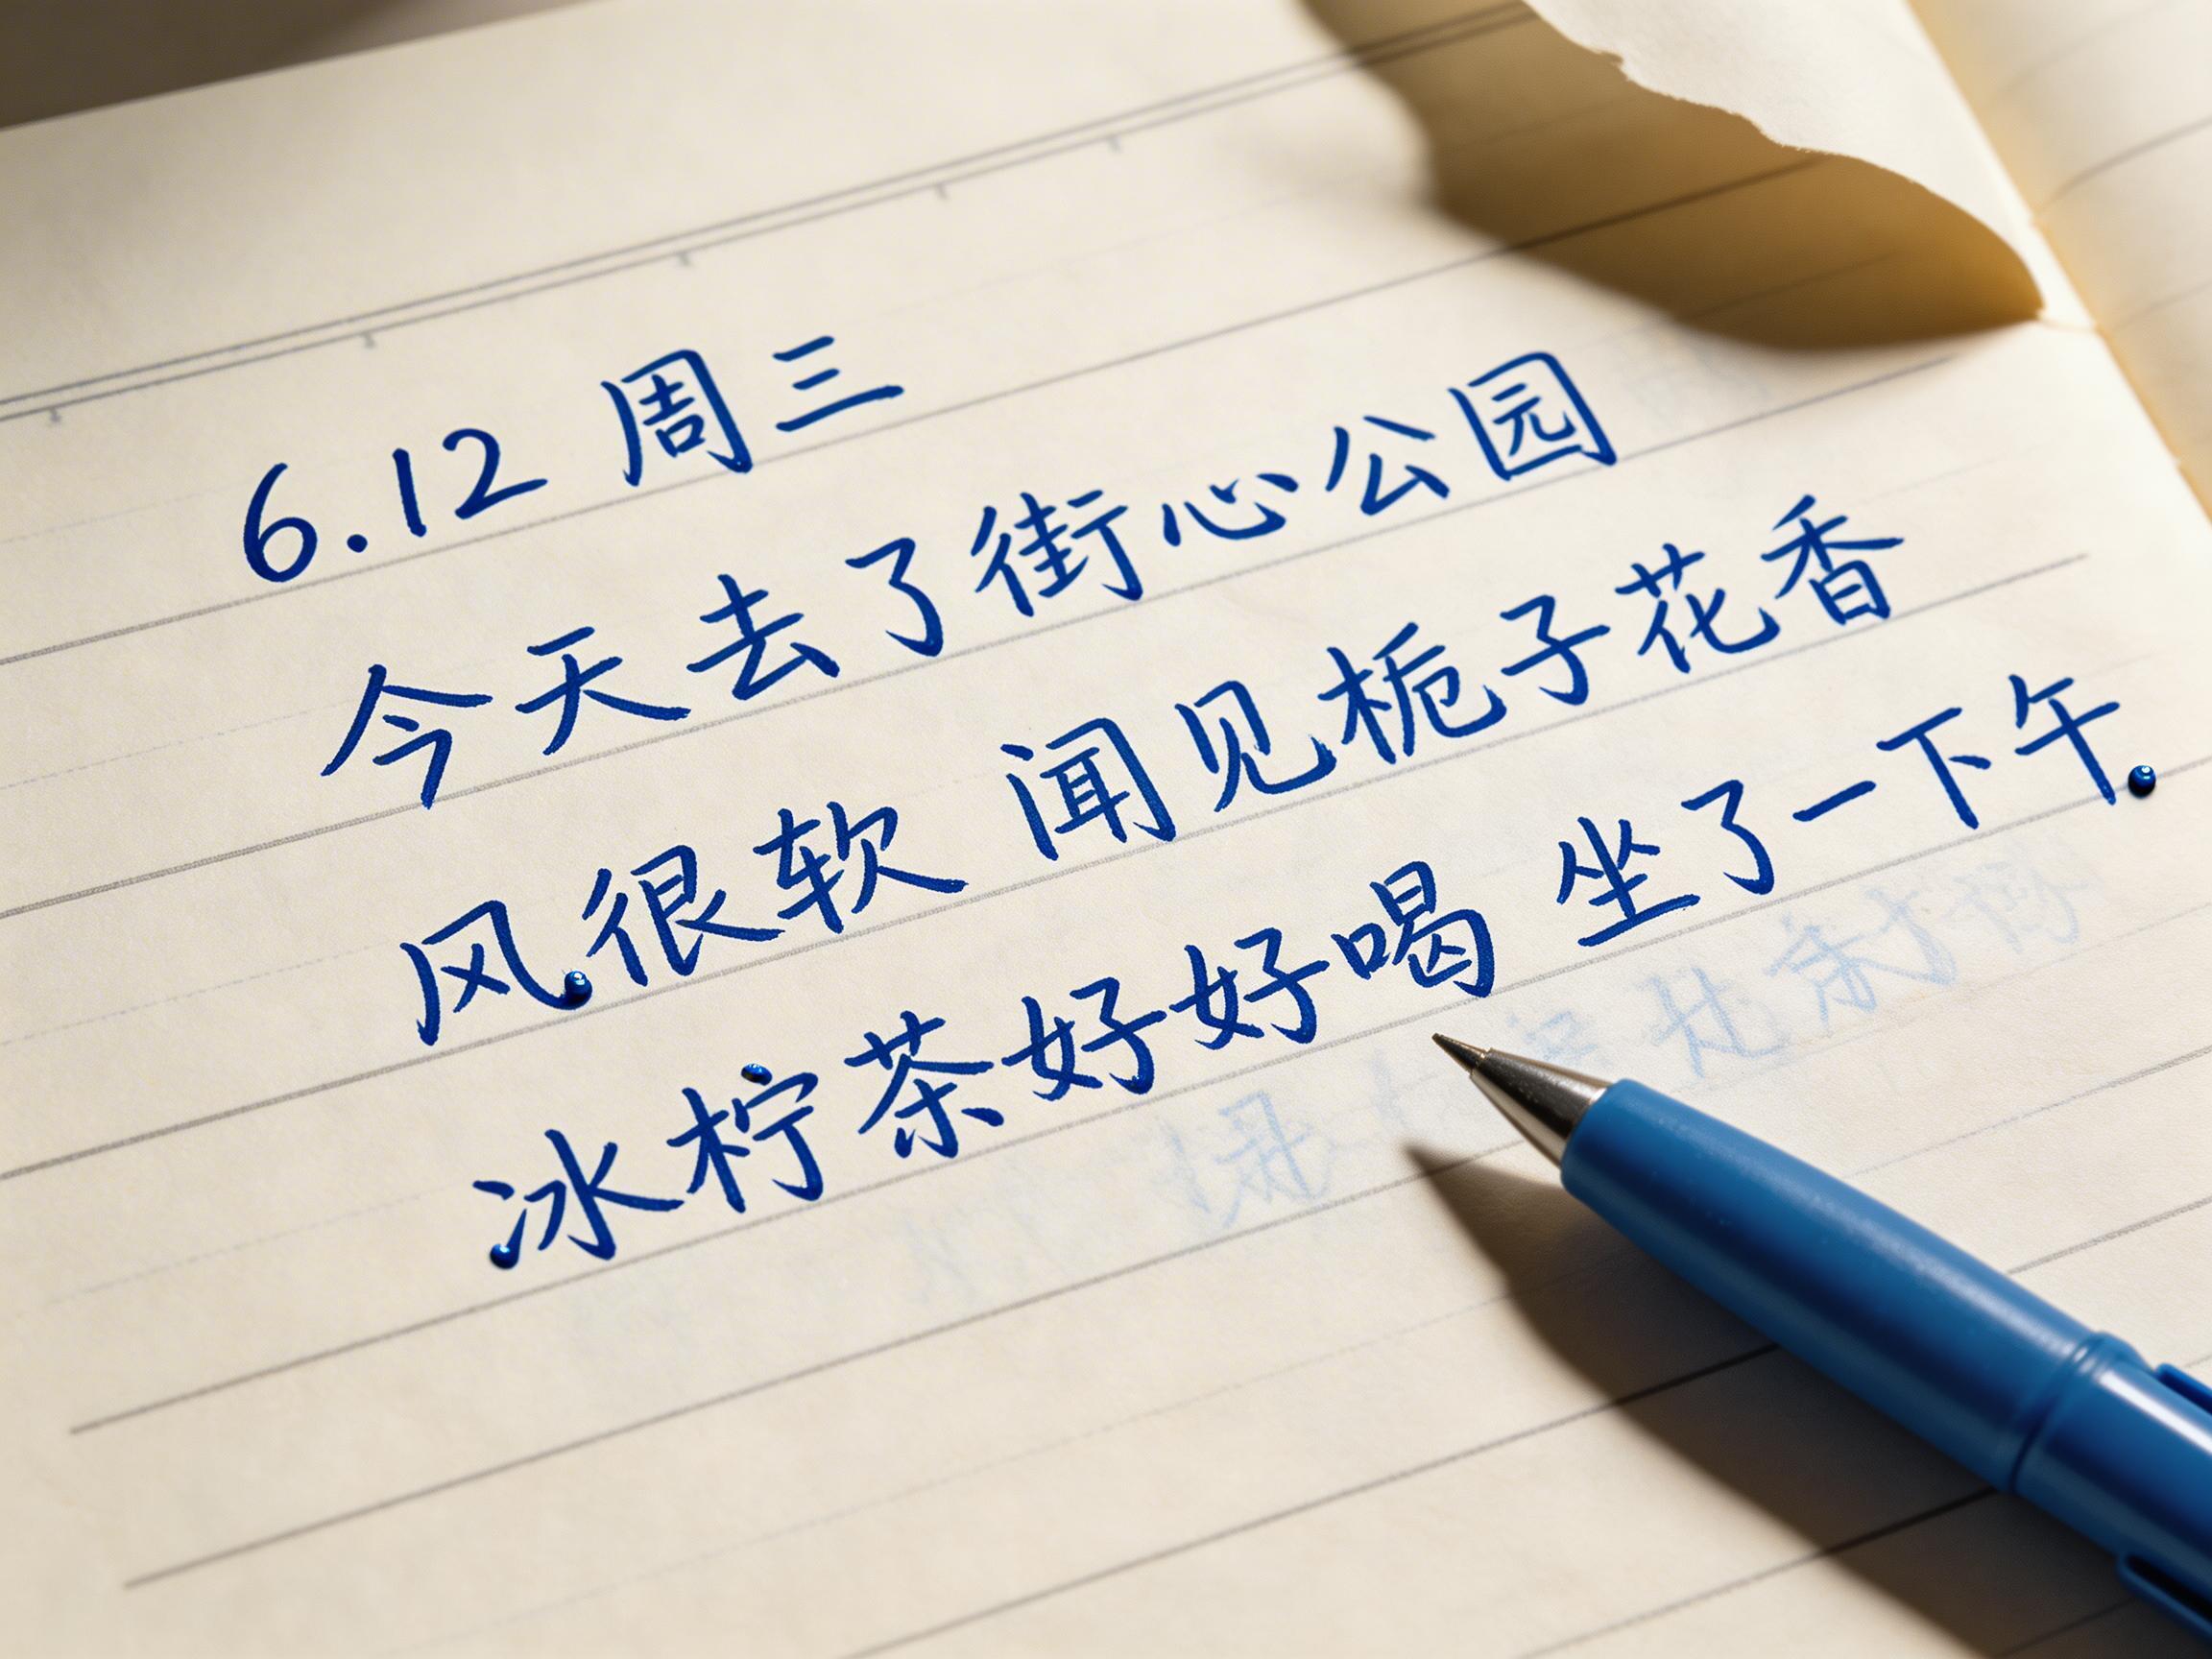 6.12 周三
今天去了街心公园
风很软 闻见栀子花香
冰柠茶好好喝 坐了一下午.